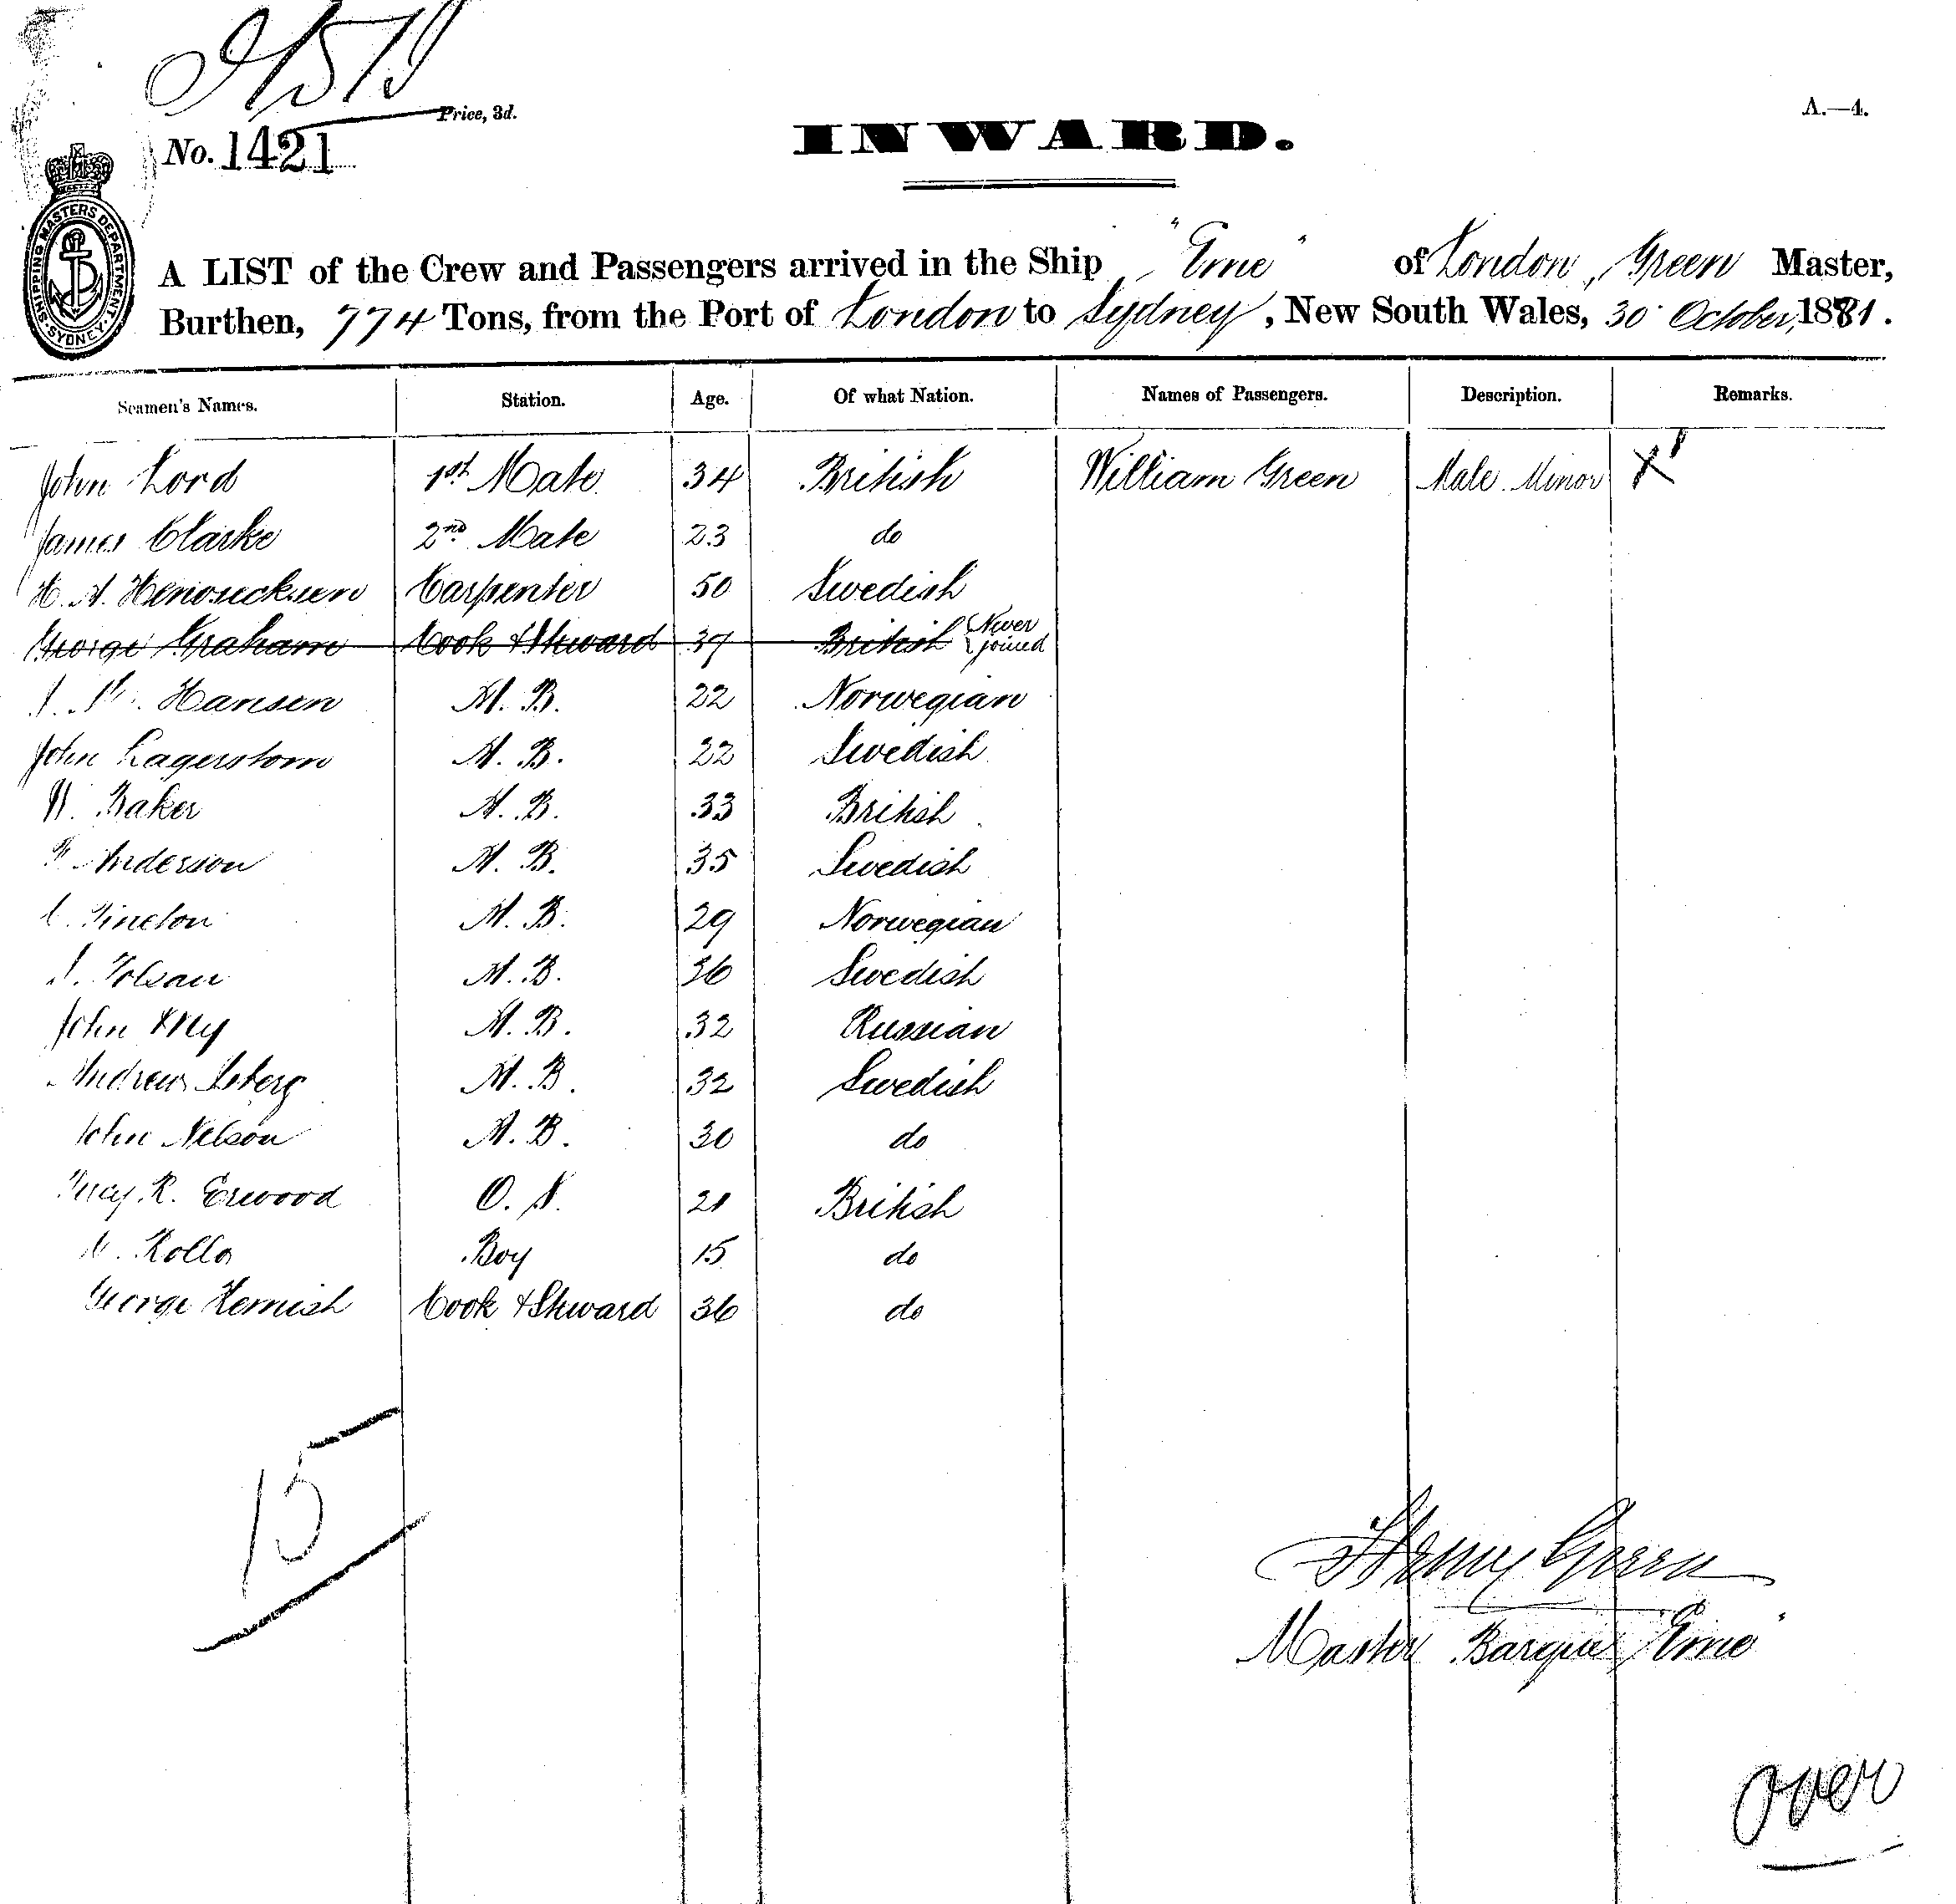 Price, 3d.
A.—4.
No. 1421
INWARD.
SHIPPING MASTERS DEPARTMENT. SYDNEY.
A LIST of the Crew and Passengers arrived in the Ship "Erne" of London, Green Master,
Burthen, 774 Tons, from the Port of London to Sydney, New South Wales, 30 October, 1881.
Seamen's Names. Station. Age. Of what Nation. Names of Passengers. Description. Remarks.
John Lord 1st Mate 34 British William Green Male Minor X
James Clarke 2nd Mate 23 do
H. A. Carpenter 50 Swedish
George Graham Cook & Steward 39 British Never joined
Hansen A. B. 22 Norwegian
John Lagerstom A. B. 22 Swedish
W. Baker A. B. 33 British
Anderson A. B. 35 Swedish
A. B. 29 Norwegian
A. B. 36 Swedish
John A. B. 32 Russian
Andrew A. B. 32 Swedish
John Nelson A. B. 30 do
R. Erwood O. S. 21 British
Rollo Boy 15 do
George Kemish Cook & Steward 36 do
15
Henry Green
Master Barque "Erne"
over